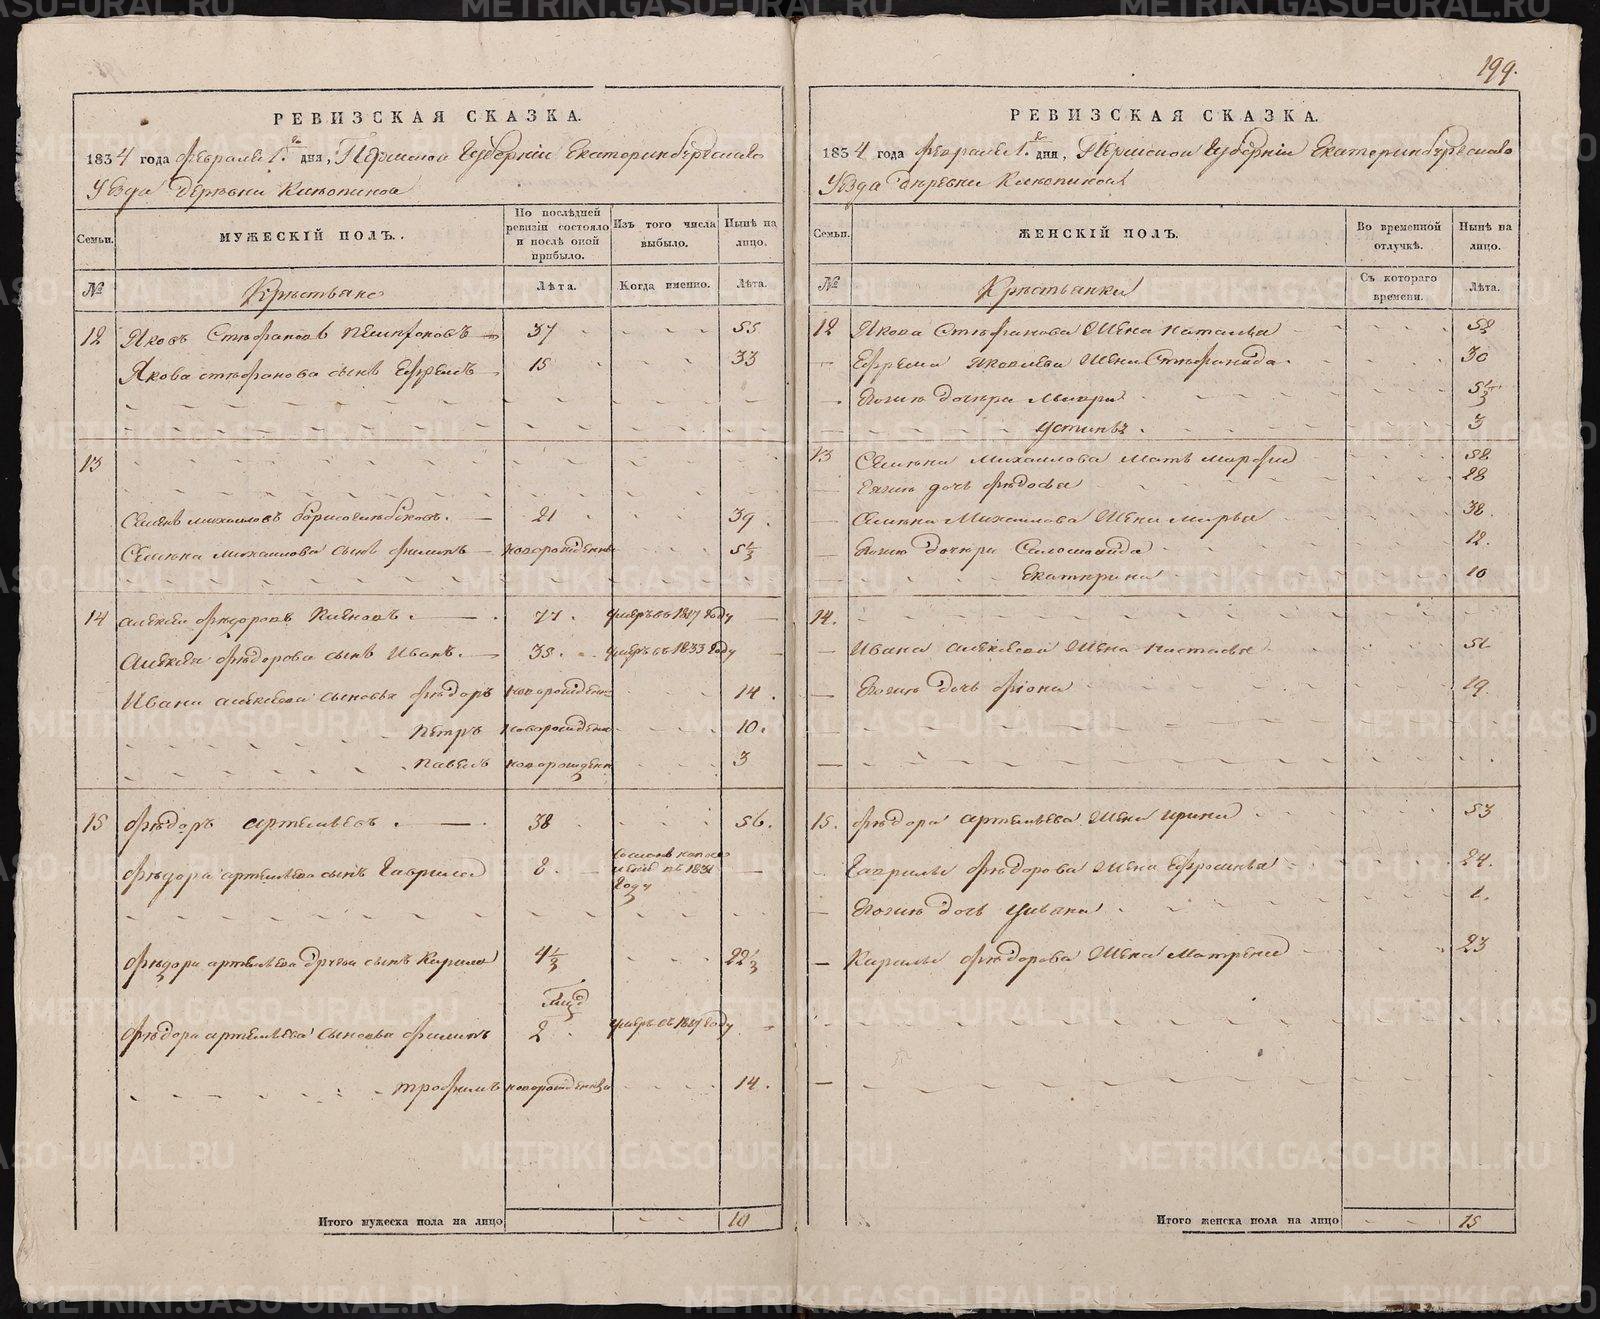 199.
РЕВИЗСКАЯ СКАЗКА.
1834 года февраля 1го дня, Пермской Губерніи Екатеринбургскаго
Уезда деревни
Семьи. МУЖЕСКІЙ ПОЛЪ. По послѣдней ревизіи состояло и послѣ оной прибыло. Изъ того числа выбыло. Нынѣ на лицо.
№ Крестьяне Лѣта. Когда именно. Лѣта.
12 Яковъ Стефановъ 37 55
Якова Стефанова сынъ Ефремъ 15 33
13
Семенъ Михайловъ 21 39.
Семена Михайлова сынъ Филипъ новорожденъ 5 1/3
14 Алексей Федоровъ 77. умеръ въ 1827 году
Алексея Федорова сынъ Иванъ. 35. умеръ въ 1833 году
Ивана Алексеева сыновья Федоръ новорожденъ 14.
Петръ новорожденъ 10.
Павелъ новорожденъ 3
15 Федоръ Артемьевъ. 38 56.
Федора Артемьева сынъ Гаврила 8. въ 1831 году
Федора Артемьева другой сынъ Кирила 4 1/3 22 1/3
Федора Артемьева сыновья Филипъ 2 умеръ въ 1827 году
Трофимъ новорожденъ 14.
Итого мужеска пола на лицо 10
РЕВИЗСКАЯ СКАЗКА.
1834 года февраля 1го дня, Пермской Губерніи Екатеринбургскаго
Уезда деревни
Семьи. ЖЕНСКІЙ ПОЛЪ. Во временной отлучкѣ. Нынѣ на лицо.
№ Крестьянки Съ котораго времени. Лѣта.
12 Якова Стефанова жена Наталья 52
Ефрема Яковлева жена Стефанида. 30
Евоныя дочери Мавра 5 1/3
Устинья. 3
13 Семена Михайлова мать Марфа 58.
Евоная дочь Федосья 28
Семена Михайлова жена Марья 38.
Евоныя дочери Соломонида 12.
Екатерина 10
14.
Ивана Алексеева жена Настасья 51
Евоная дочь Фіона 19.
15. Федора Артемьева жена Ирина 53
Гаврилы Федорова жена Ефросинья 24.
Евоная дочь Ульяна 1.
Кирилы Федорова жена Матрена 23
Итого женска пола на лицо 15
METRIKI.GASO-URAL.RU